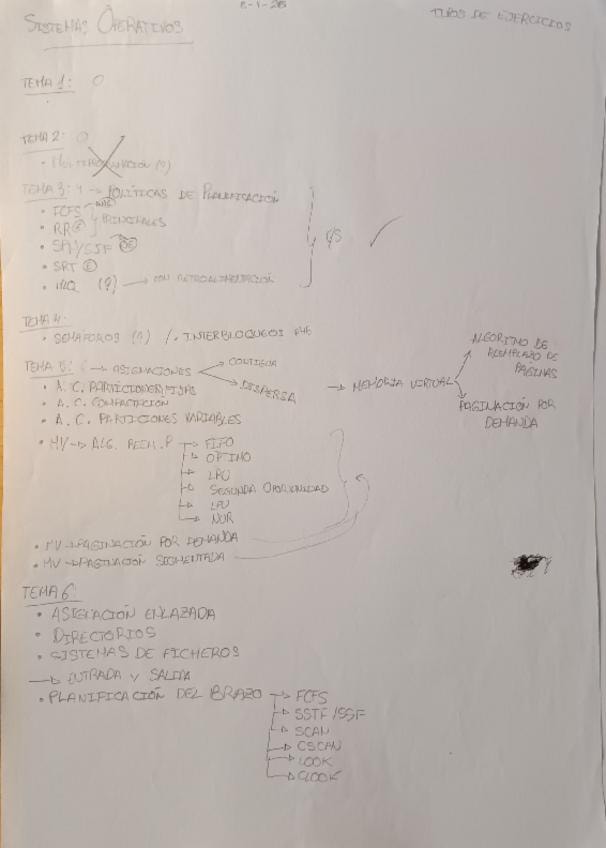 8-1-25
SISTEMAS OPERATIVOS
TIPOS DE EJERCICIOS
TEMA 1: 0
TEMA 2: 0
TEMA 3: 4 → POLÍTICAS DE PLANIFICACIÓN
• FCFS
• RR PRINCIPALES
• SPN/SJF
• SRT
• MQ (?) → CON RETROALIMENTACIÓN
TEMA 4:
• SEMÁFOROS (1) /. INTERBLOQUEOS
TEMA 5: → ASIGNACIONES → CONTIGUA
→ DISPERSA → MEMORIA VIRTUAL
ALGORITMO DE REEMPLAZO DE PÁGINAS
PAGINACIÓN POR DEMANDA
• A.C. PARTICIONES FIJAS
• A.C. COMPACTACIÓN
• A.C. PARTICIONES VARIABLES
• MV → ALG. REEM. P → FIFO
→ OPTIMO
→ LRU
→ SEGUNDA OPORTUNIDAD
→ LFU
→ NUR
• MV → PAGINACIÓN POR DEMANDA
• MV → PAGINACIÓN SEGMENTADA
TEMA 6
• ASIGNACIÓN ENLAZADA
• DIRECTORIOS
• SISTEMAS DE FICHEROS
→ ENTRADA Y SALIDA
• PLANIFICACIÓN DEL BRAZO → FCFS
→ SSTF/SSF
→ SCAN
→ CSCAN
→ LOOK
→ CLOOK